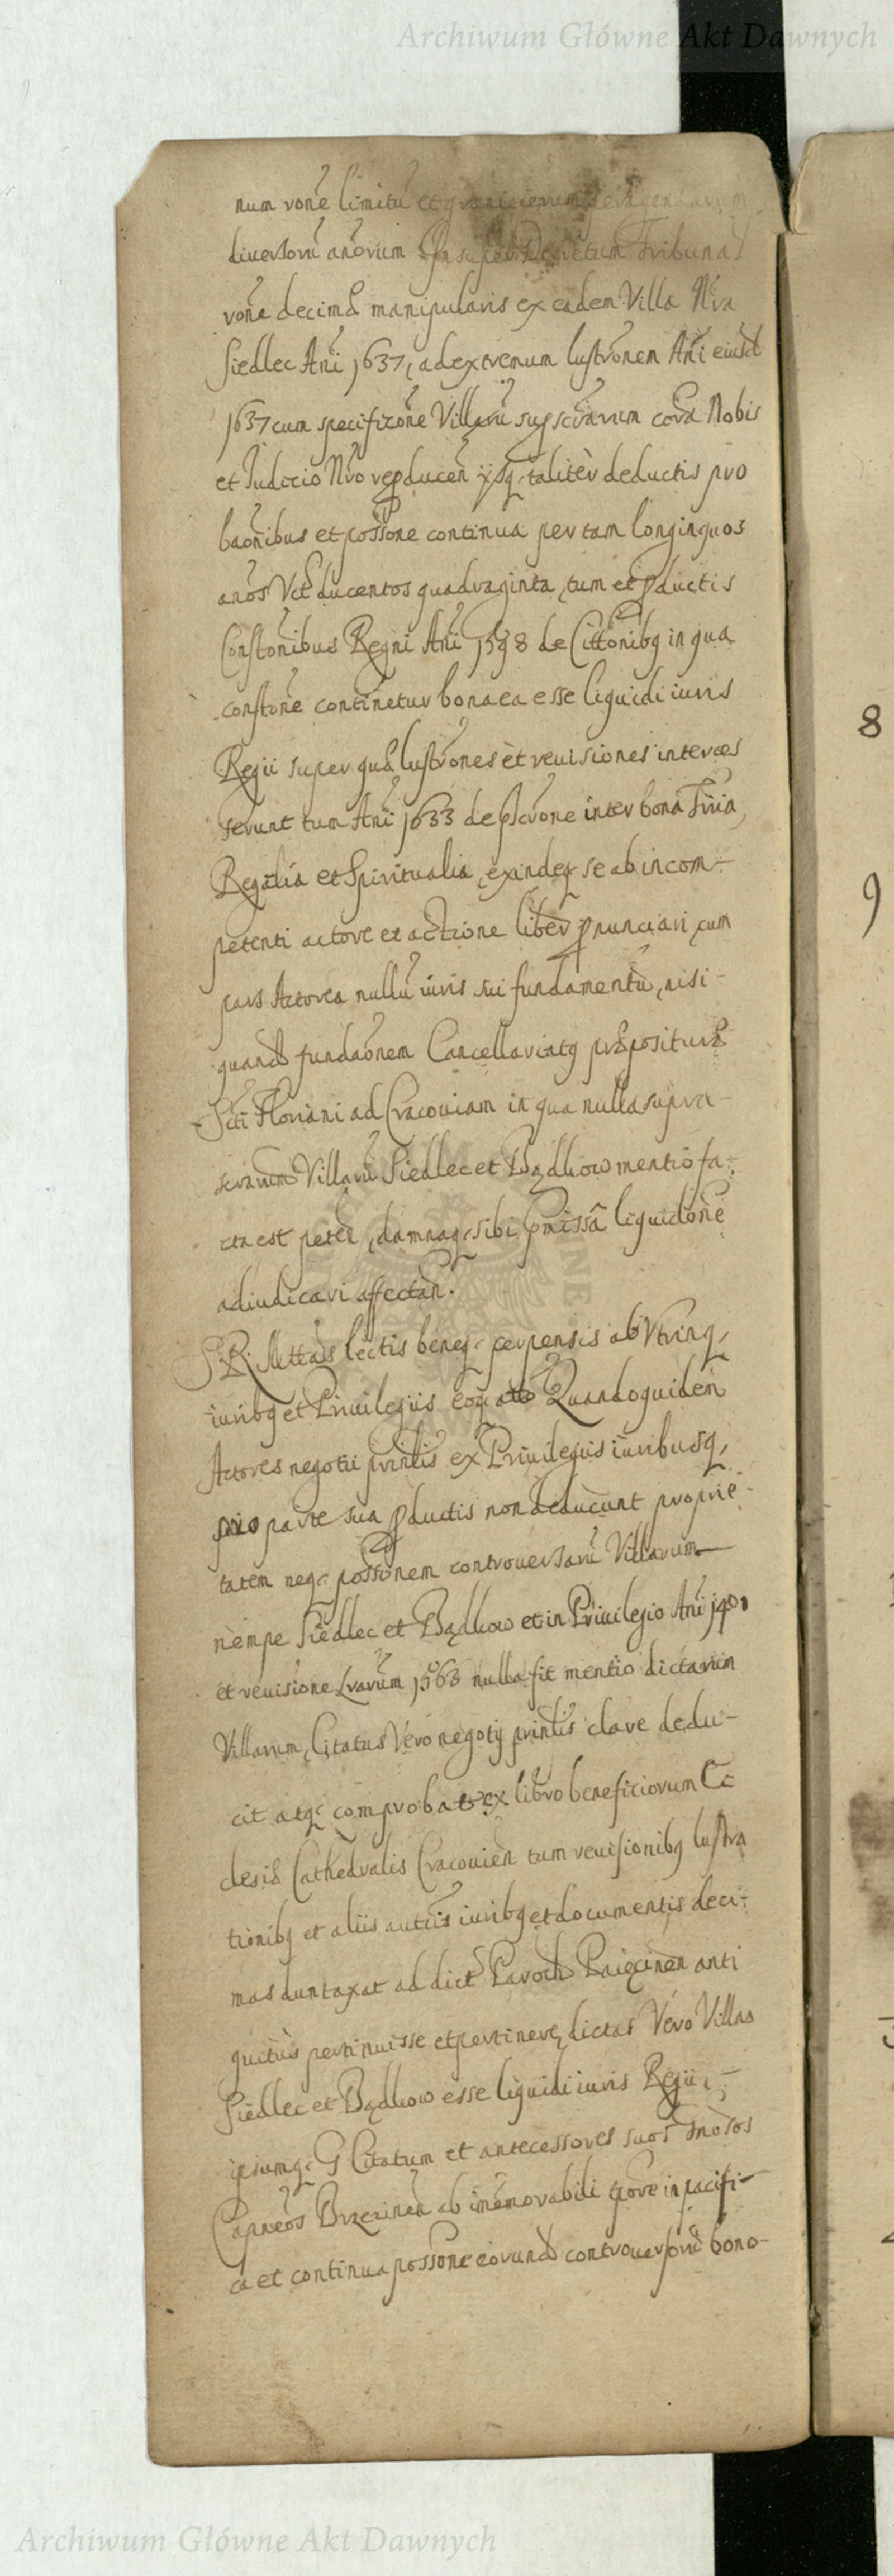 Archiwum Główne Akt Dawnych
num rõne limitũ et granicierum peragendarum
diuersorũ anõrum Insuper Decretum Tribunal
rõne decimæ manipularis ex eadem Villa Nra
Siedlec Ani 1637, ad extremum lustrõnem Ani eiusd
1637 cum specificõne Villarũ supscrarum corã Nobis
et Judicio Nro reproducen ysq taliter deductis pro
baõnibus et possõne continua per tam longinquos
anõs Vct ducentos quadraginta, tum et pductis
Constõnibus Regni Ani 1598 de Cittõnibq in qua
constõne continetur bona ea esse liquidi iuris
Regii super quæ lustrõnes et reuisiones interces
serunt tum Ani 1633 de pscrõne inter bona Trria,
Regalia et Spiritualia, exindeq se ab incom-
petenti actore et actione liberũ pnunciari, cum
pars Actorea nullũ iuris sui fundamentũ, nisi-
quand fundaõnem Cancellariatq præposituræ
Scti Floriani ad Cracouiam in qua nulla supra-
scrarum Villarũ Siedlec et Bądkow mentio fa-
cta est peten, damnaq sibi pmissâ liquidõne
adiudicari affectan.
S. R. Mttas lectis beneq perpensis ab Vtrinq,
iuribq et Priuilegiis Quandoquidem
Actores negotii prinlis ex Priuilegiis iuribusq,
pro parte sua pductis non deducunt proprie-
tatem neq possõnem controuersarũ Villarum
nempe Siedlec et Bądkow et in Priuilegio Ani 1401
et reuisione Lrarum 1563 nulla fit mentio dictarum
Villarum, Citatus Vero negotij prinlis clare dedu-
cit atq comprobat ex libro beneficiorum Ec
clesiæ Cathedralis Cracouien tum reuisionibq lustra
tionibq et aliis autcis iuribq et documentis deci-
mas duntaxat ad dict Paroch anti
quitus pertinuisse et pertinere, dictas Vero Villas
Siedlec et Bądkow esse liquidi iuris Regii,-
ipsumq G Citatum et antecessores suos Tnõsos
Capneos Brzezinen ab imẽmorabili tpõre in pacifi-
ca et continua possõne eorund controuersorũ bono-
8
9
Archiwum Główne Akt Dawnych